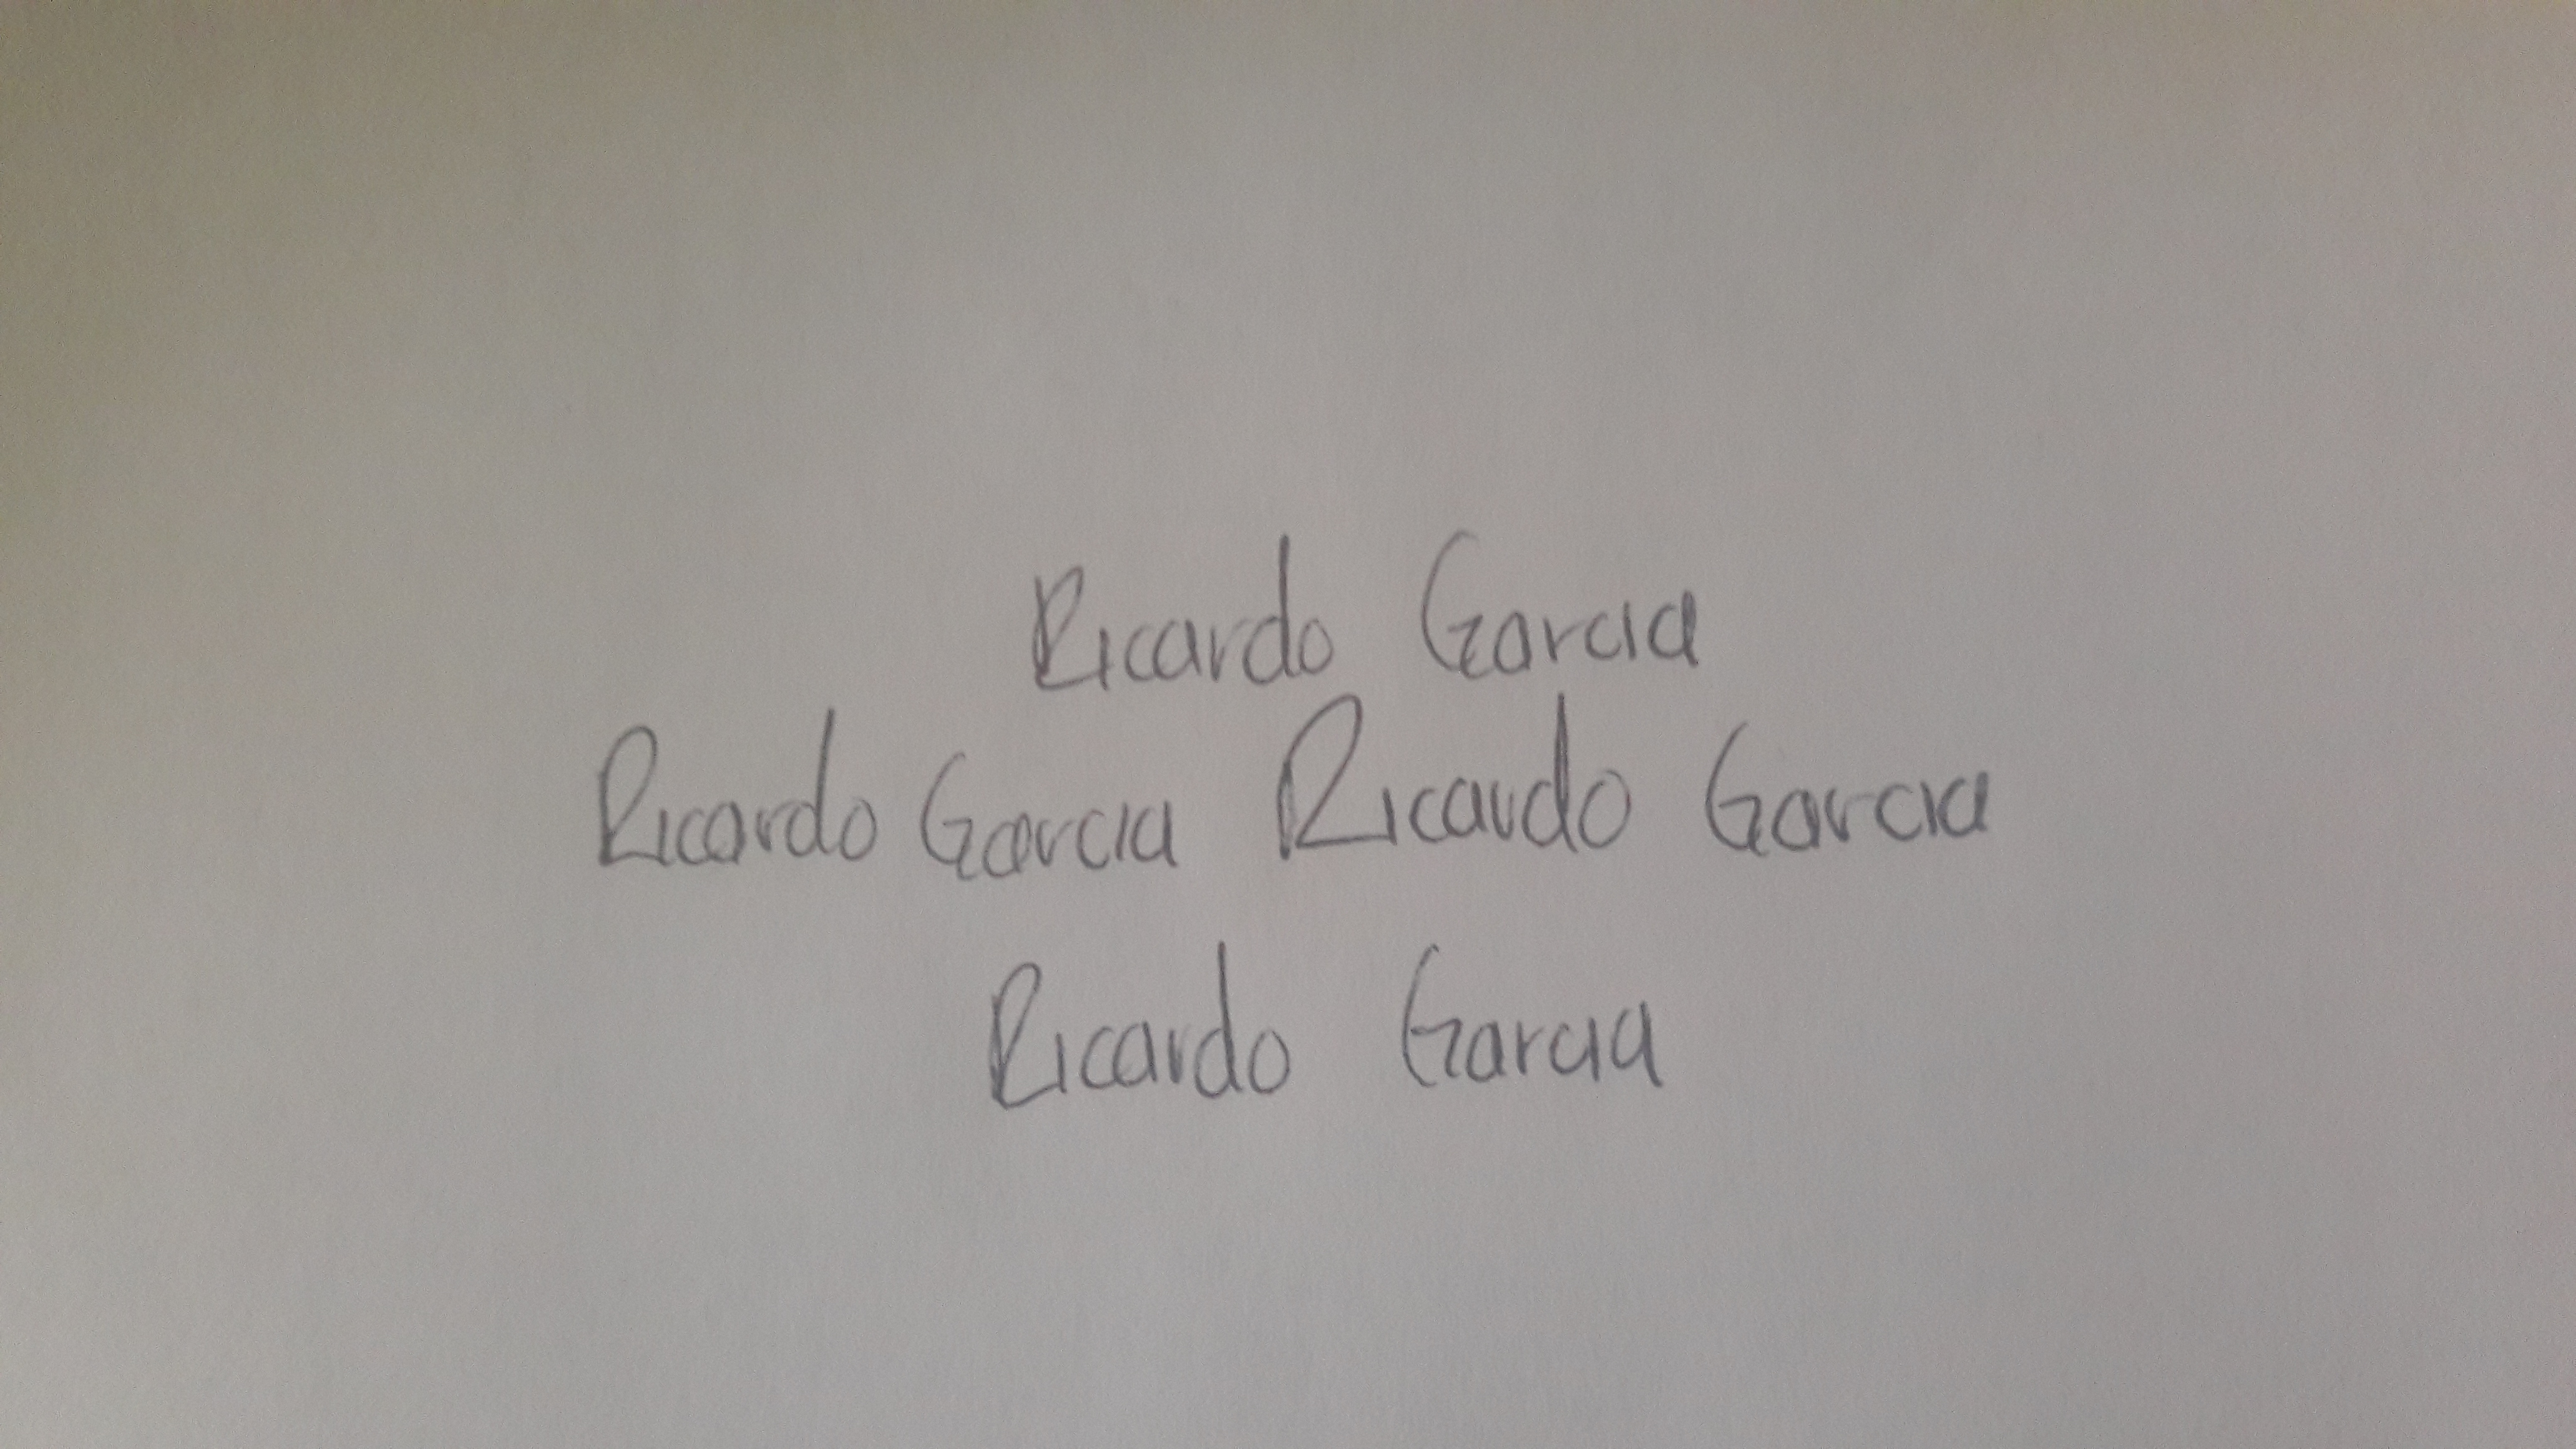 Ricardo Garcia
Ricardo Garcia Ricardo Garcia
Ricardo Garcia